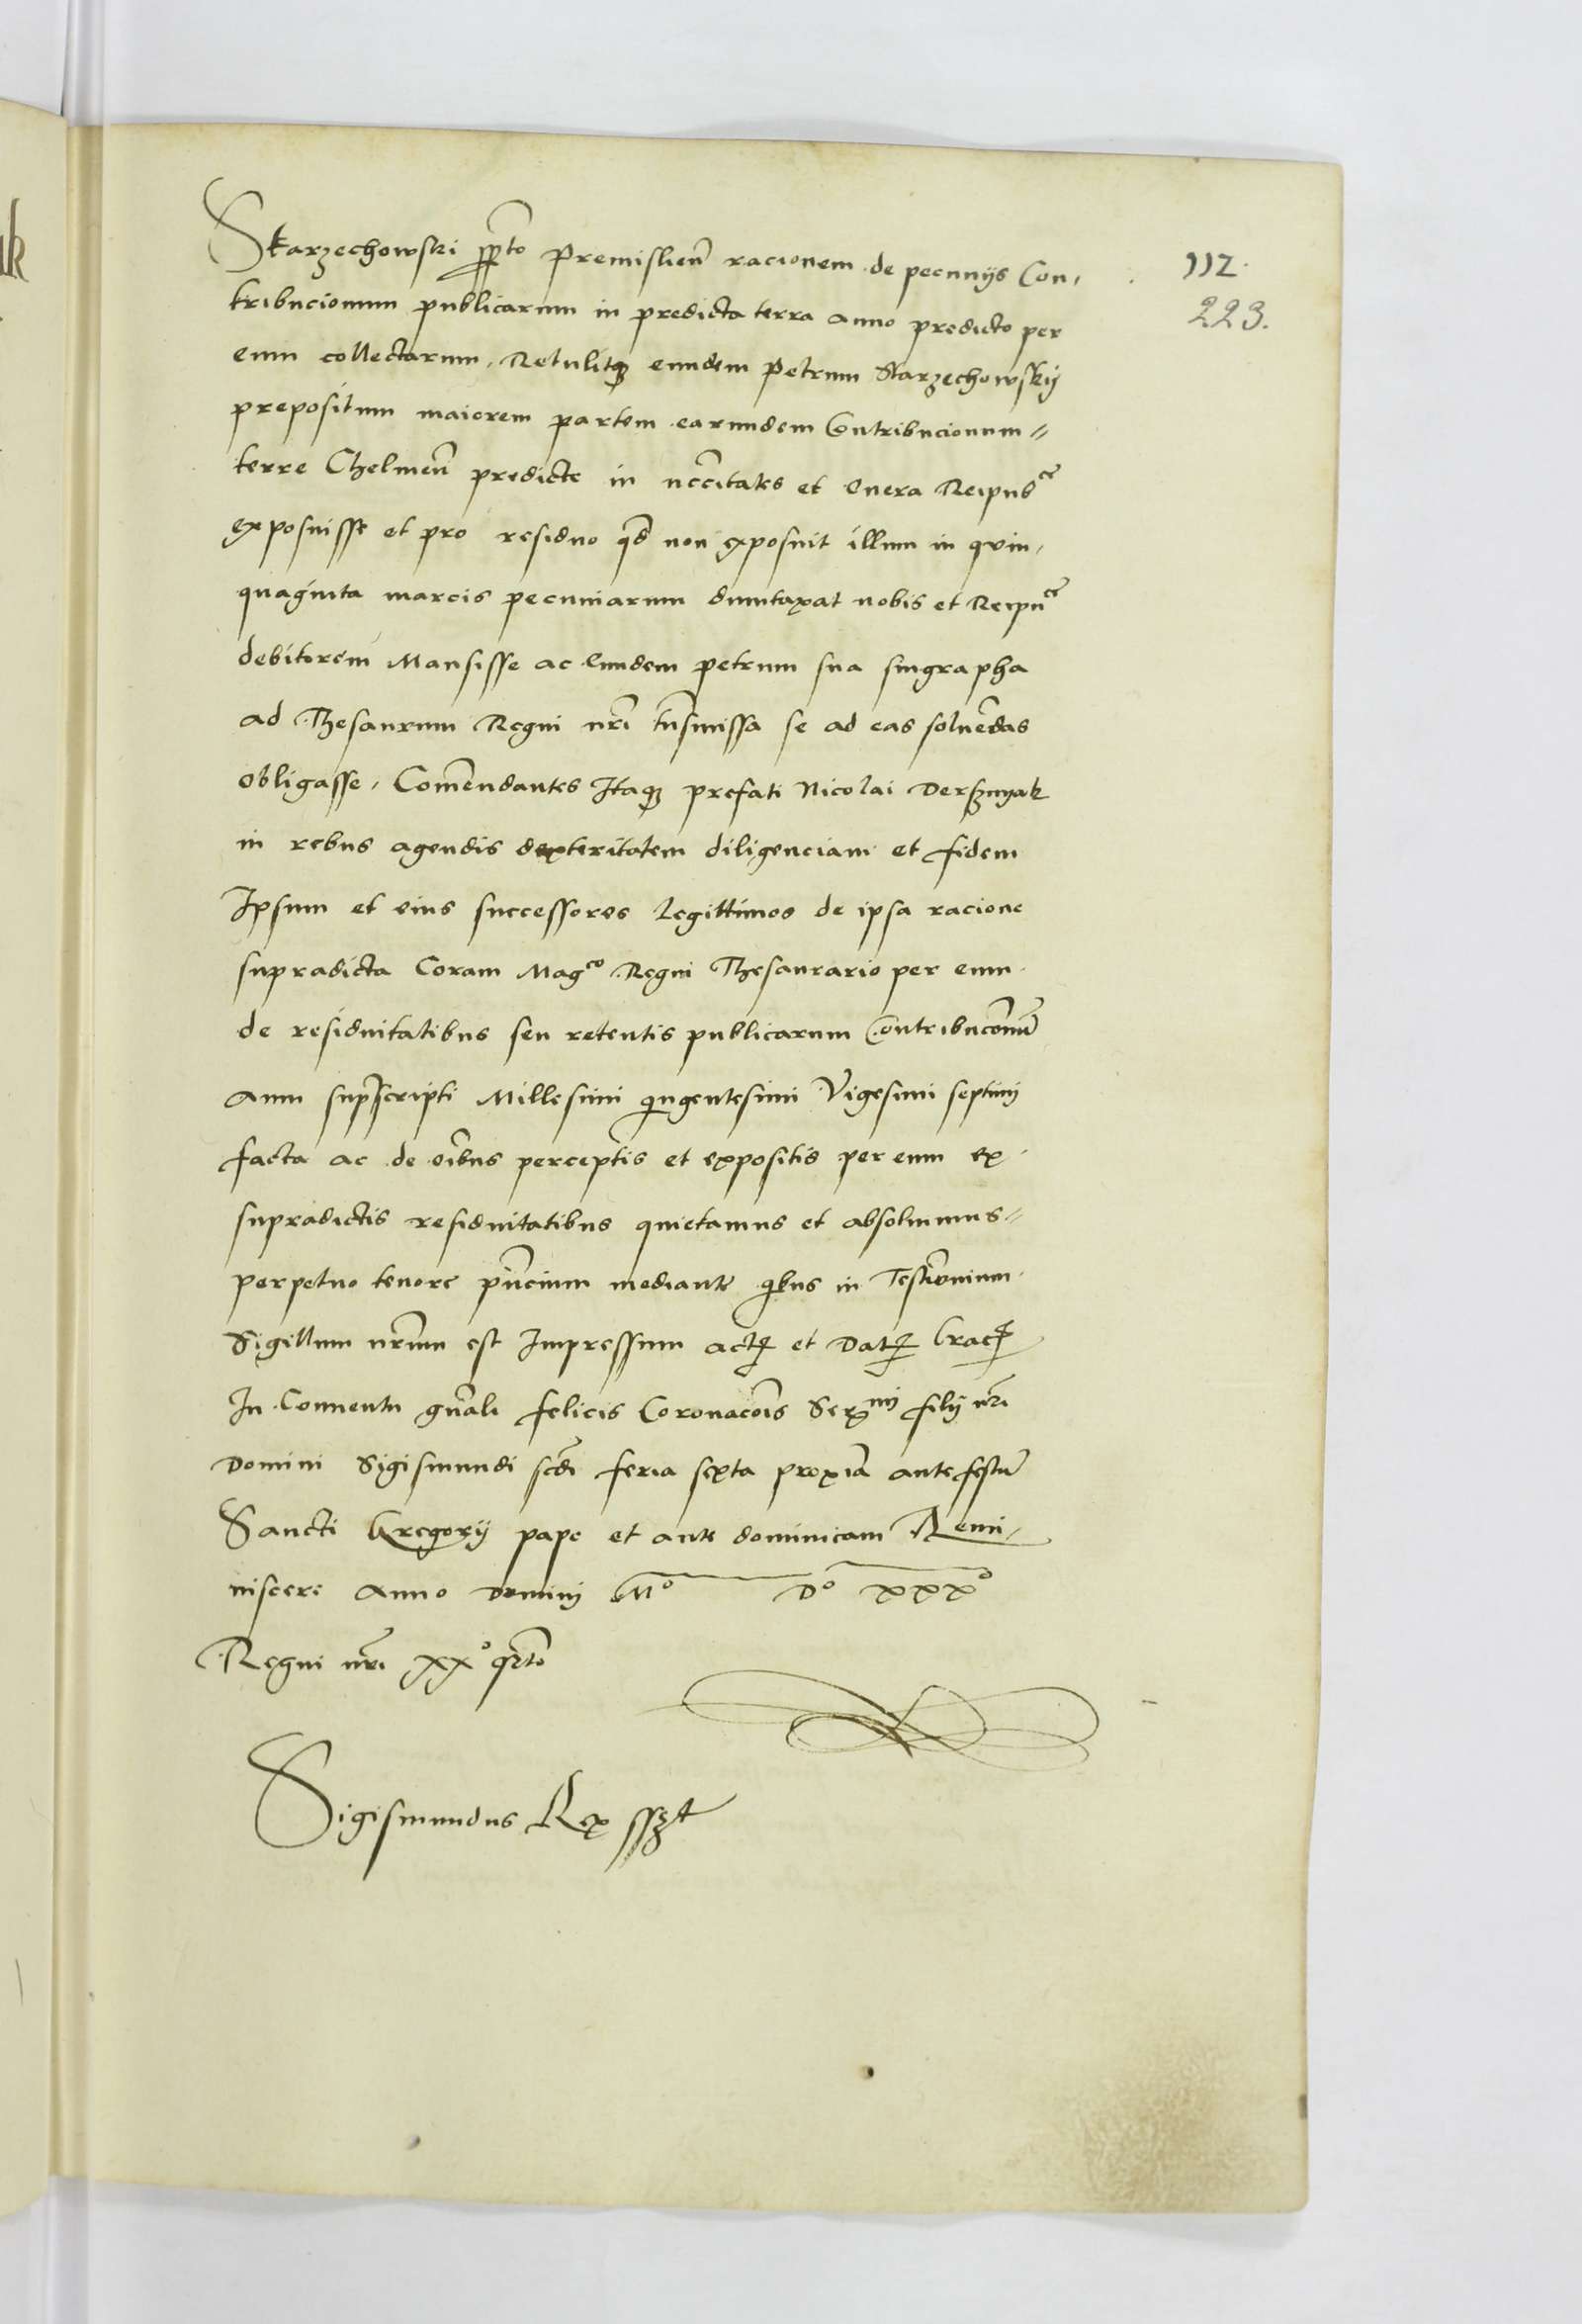 Starzechowski pp̄to Premislien̄ racionem de pecunijs Con,
112.
tribucionum publicarum in predicta terra anno predicto per
223.
eum collectarum, Retulitq₃ eundem Petrum Starzechowskij
prepositum maiorem partem earundem Contribucionum //
terre Chelmen̄ predicte in nccītates et onera Reipub^ce
exposuisse et pro residuo qd̄ non exposuit illum in quin,
quaginta marcis pecuniarum dumtaxat nobis et Reipu^ce
debitorem Mansisse ac eundem petrum sua singrapha
ad Thesaurum Regni nrī trn̄smissa se ad eas soluēdas
obligasse, Com̄endantes Itaq₃ prefati Nicolai Dersznyak
in rebus agendis dexteritatem diligenciam et fidem
Ipsum et eius successores legittimos de ipsa racione
supradicta Coram Mag^co Regni Thesaurario per eum
de residuitatibus seu retentis publicarum Contribucōnū
Anni suprascripti Millesimi quingentesimi Vigesimi septimi
facta ac de oībus perceptis et expositis per eum ex
supradictis residuitatibus quietamus et absoluimus //
perpetuo tenore pn̄cium mediante quibus in Testīonium
Sigillum nrūm est Impressum act₄ et Dat₄ Crac₄
In Conuentu gn̄ali felicis Coronacōis Ser^mi filij nrī
Domini Sigismundi scdī feria sexta proxīa ante festū
Sancti Gregorij pape et ante dominicam Remi,
niscere Anno Domini M^o D^o xxx^o
Regni nrī xx^o qrto
Sigismundus Rex sszt